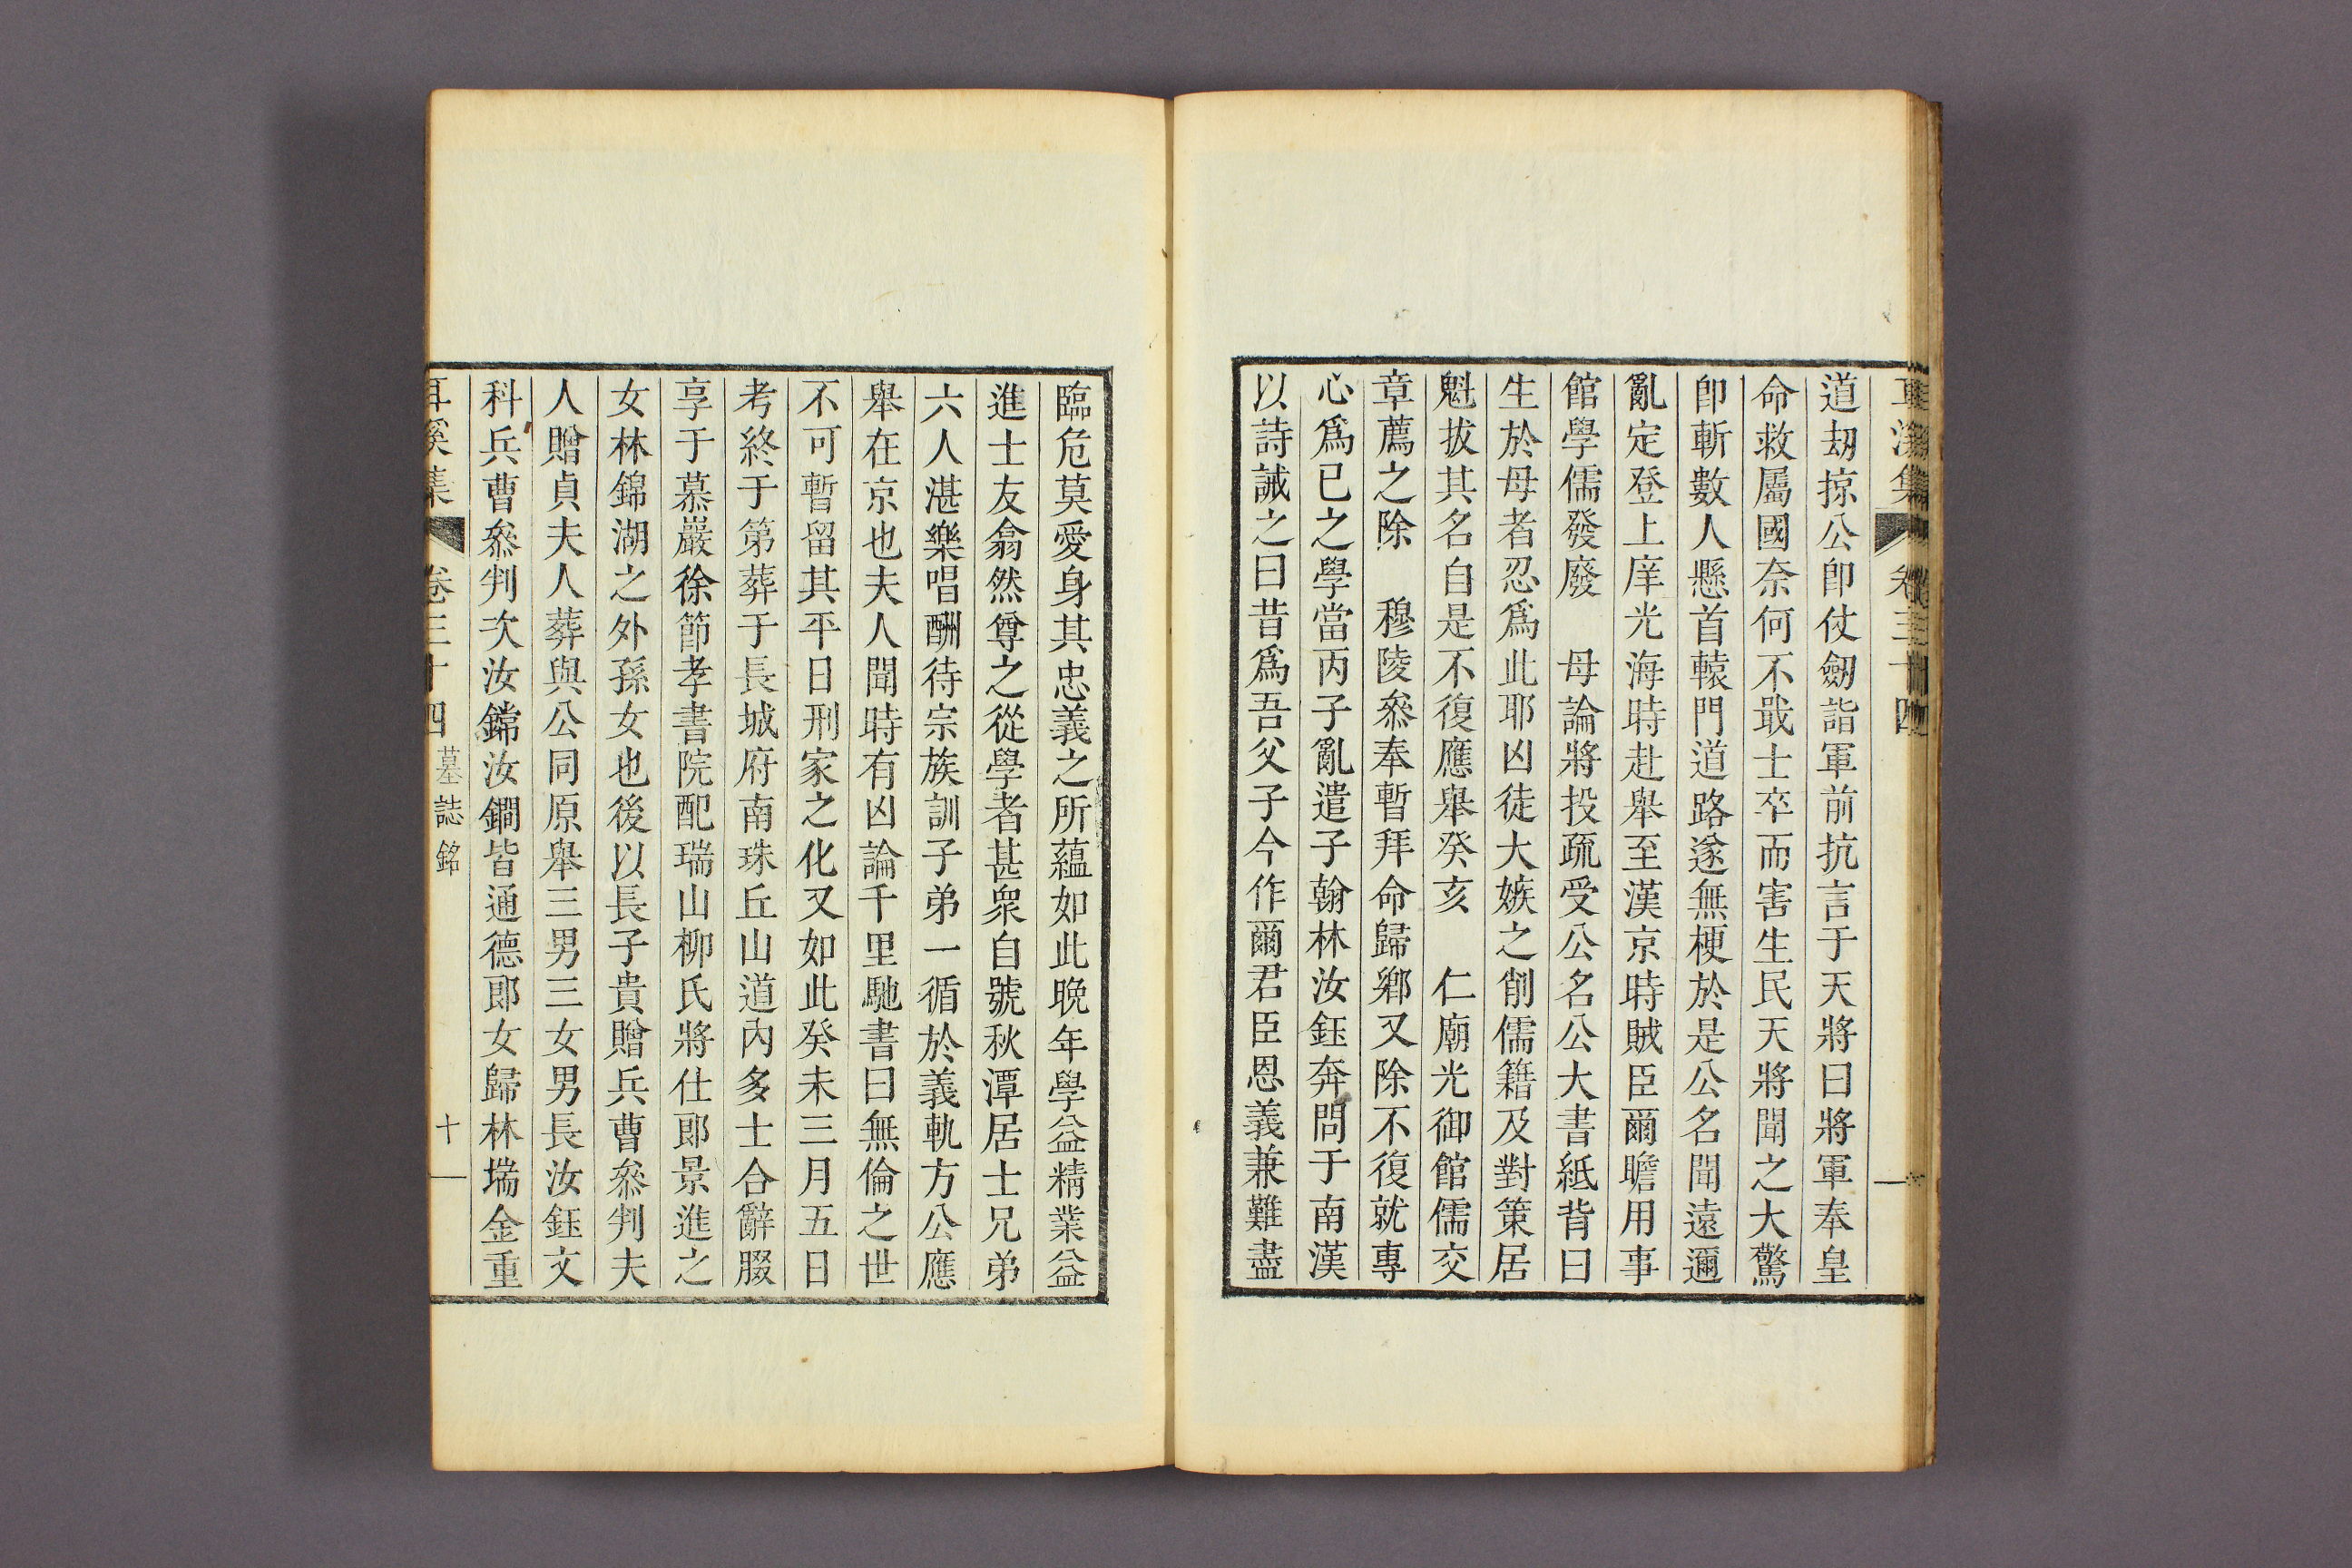 耳溪集 卷三十四
道刼掠公卽仗劒詣軍前抗言于天將曰將軍奉皇
命救屬國奈何不戢士卒而害生民天將聞之大驚
卽斬數人懸首轅門道路遂無梗於是公名聞遠邇
亂定登上庠光海時赴舉至漢京時賊臣爾瞻用事
館學儒發廢 母論將投疏受公名公大書紙背曰
生於母者忍爲此耶凶徒大嫉之削儒籍及對策居
魁拔其名自是不復應舉癸亥 仁廟光御館儒交
章薦之除 穆陵叅奉暫拜命歸鄕又除不復就專
心爲已之學當丙子亂遣子翰林汝鈺奔問于南漢
以詩誡之曰昔爲吾父子今作爾君臣恩義兼難盡
臨危莫愛身其忠義之所蘊如此晚年學益精業益
進士友翕然尊之從學者甚衆自號秋潭居士兄弟
六人湛樂唱酬待宗族訓子弟一循於義軌方公應
舉在京也夫人聞時有凶論千里馳書曰無倫之世
不可暫留其平日刑家之化又如此癸未三月五日
考終于第葬于長城府南珠丘山道內多士合辭腏
享于慕巖徐節孝書院配瑞山柳氏將仕郎景進之
女林錦湖之外孫女也後以長子貴贈兵曹叅判夫
人贈貞夫人葬與公同原舉三男三女男長汝鈺文
科兵曹叅判次汝鐺汝鐧皆通德郎女歸林塏金重
耳溪集 卷三十四 墓誌銘 十一